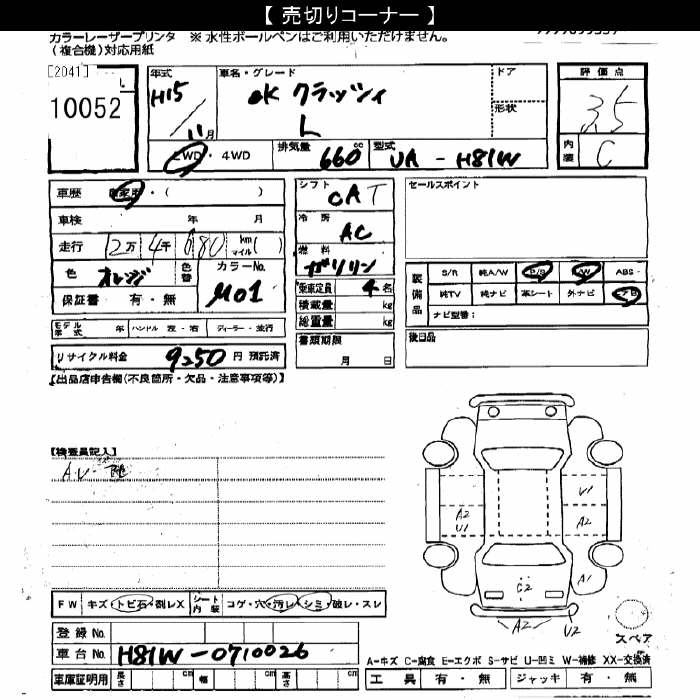 【 売切りコーナー 】
カラーレーザープリンタ ※ 水性ボールペンはご利用いただけません。
(複合機)対応用紙
[2041]
10052
年式 車名・グレード ドア
H15 eK クラッツィ
形状
11月 L
2WD・4WD 排気量 660 cc 型式 UA - H81W
評価点
3.5
内装 C
車歴 自家用・( )
車検 年 月
走行 2万 4千 680 km マイル ( )
色 オレンジ 色替 カラーNo.
M01
保証書 有・無
モデル年式 年 ハンドル 左・右 ディーラー・並行
リサイクル料金 9250 円 預託済
シフト
CAT
冷房
AC
燃料
ガソリン
乗車定員 4 名
積載量 kg
総重量 kg
書類期限
月 日
セールスポイント
装備品 S/R 純A/W P/S P/W ABS
純TV 純ナビ 革シート 外ナビ エアB
ナビ型番:
後日品
【出品店申告欄(不良箇所・欠品・注意事項等)】
【検査員記入】
AV
U1
A2
U1
A2
C2
A1
A2
U2
スペア
FW キズ・トビ石・割レX シート内装 コゲ・穴・汚レ・シミ・破レ・スレ
登録No.
車台No. H81W-0710026
車庫証明用 長さ cm 幅 cm 高さ cm
A=キズ C=腐食 E=エクボ S=サビ U=凹ミ W=補修 XX=交換済
工具 有・無 ジャッキ 有・無